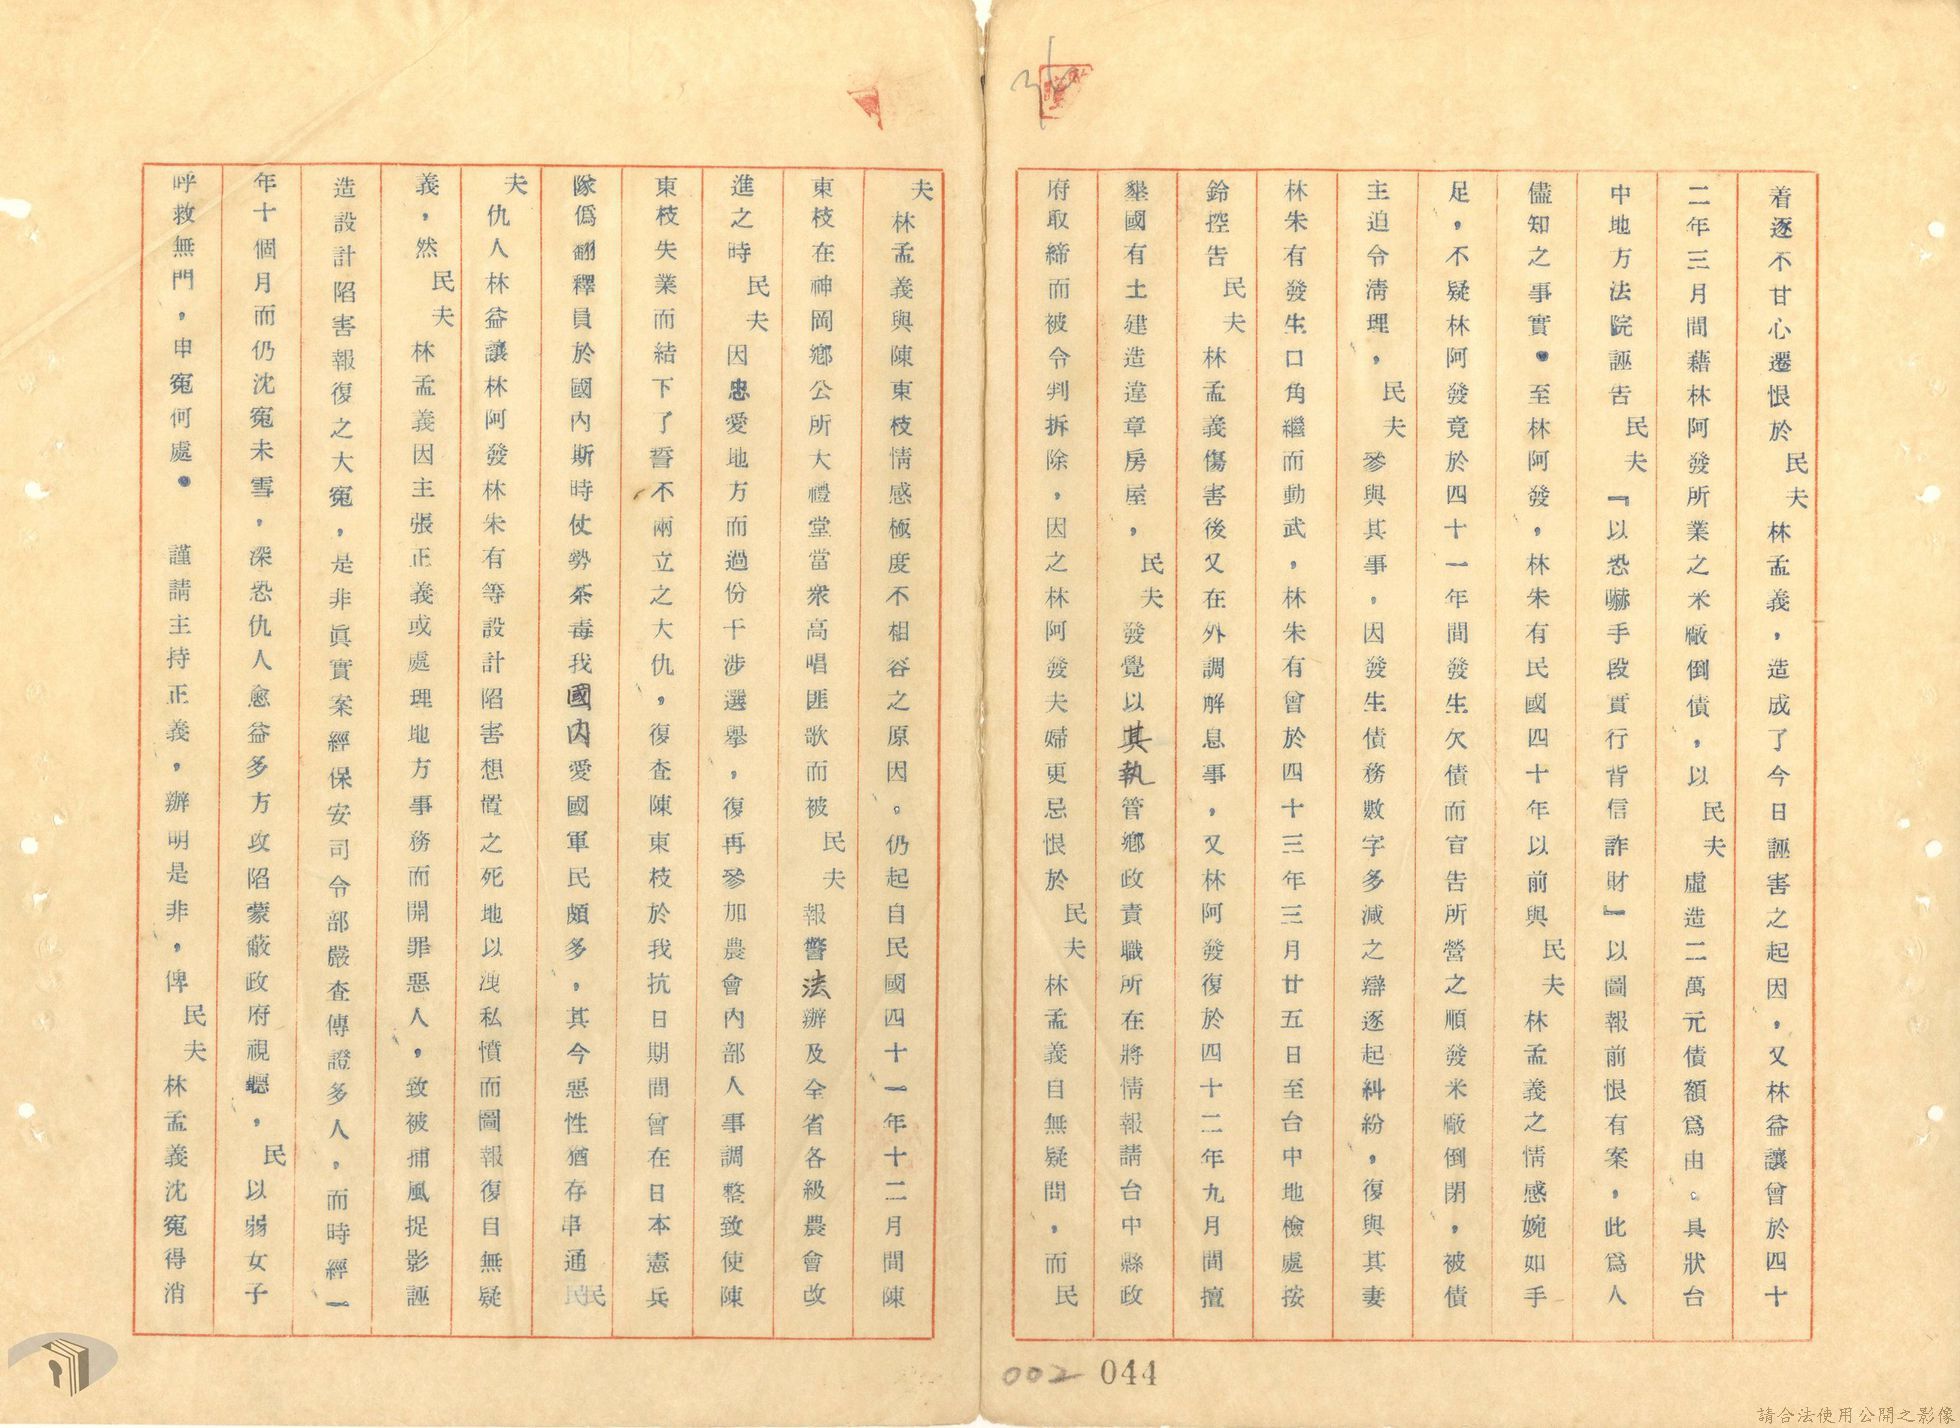 着逐不甘心遷恨於民夫林孟義，造成了今日誣害之起因，又林益讓曾於四十
二年三月間藉林阿發所業之米廠倒債，以民夫虛造二萬元債額爲由。具狀台
中地方法院誣告民夫『以恐嚇手段實行背信詐財』以圖報前恨有案，此爲人
儘知之事實。至林阿發，林朱有民國四十年以前與民夫林孟義之情感婉如手
足，不疑林阿發竟於四十一年間發生欠債而宣告所營之順發米廠倒閉，被債
主迫令淸理，民夫參與其事，因發生債務數字多減之辯逐起糾紛，復與其妻
林朱有發生口角繼而動武，林朱有曾於四十三年三月廿五日至台中地檢處按
鈴控告民夫林孟義傷害後又在外調解息事，又林阿發復於四十二年九月間擅
墾國有土建造違章房屋，民夫發覺以其執管鄉政責職所在將情報請台中縣政
府取締而被令判拆除，因之林阿發夫婦更忌恨於民夫林孟義自無疑問，而民
夫林孟義與陳東枝情感極度不相谷之原因。仍起自民國四十一年十二月間陳
東枝在神岡鄉公所大禮堂當衆高唱匪歌而被民夫報警法辦及全省各級農會改
進之時民夫因忠愛地方而過份干涉選舉，復再參加農會內部人事調整致使陳
東枝失業而結下了誓不兩立之大仇，復查陳東枝於我抗日期間曾在日本憲兵
隊僞翻釋員於國內斯時仗勢荼毒我國內愛國軍民頗多，其今惡性猶存串通民
夫仇人林益讓林阿發林朱有等設計陷害想置之死地以洩私憤而圖報復自無疑
義，然民夫林孟義因主張正義或處理地方事務而開罪惡人，致被捕風捉影誣
造設計陷害報復之大冤，是非眞實案經保安司令部嚴查傳證多人，而時經一
年十個月而仍沈冤未雪，深恐仇人愈益多方攻陷蒙蔽政府視聽，民以弱女子
呼救無門，申冤何處。謹請主持正義，辦明是非，俾民夫林孟義沈冤得消
002 044
請合法使用公開之影像